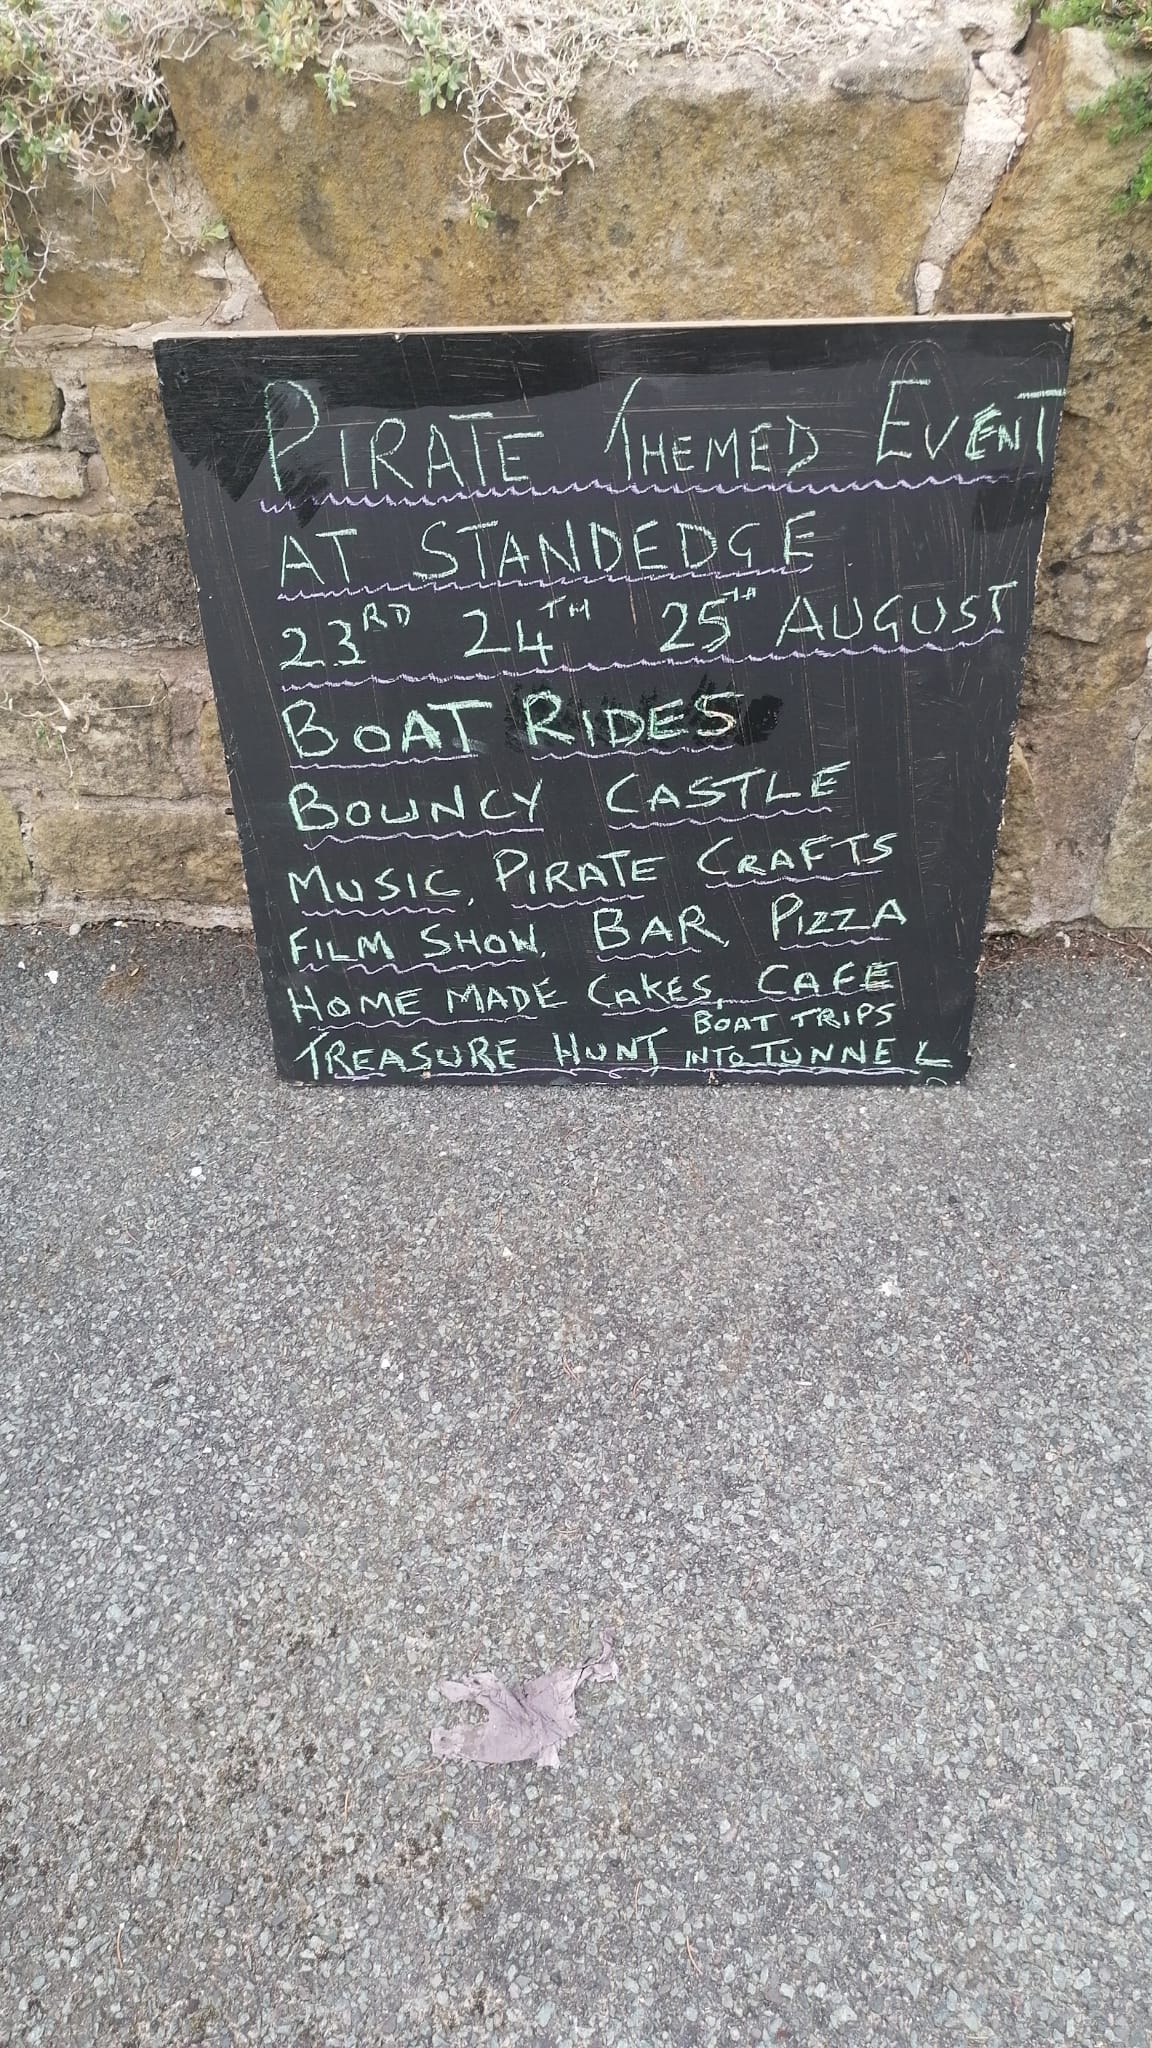 PIRATE THEMED EVENT
AT STANDEDGE
23RD 24TH 25TH AUGUST
BOAT RIDES
BOUNCY CASTLE
MUSIC, PIRATE CRAFTS
FILM SHOW, BAR, PIZZA
HOME MADE CAKES, CAFE
TREASURE HUNT BOAT TRIPS
INTO TUNNEL